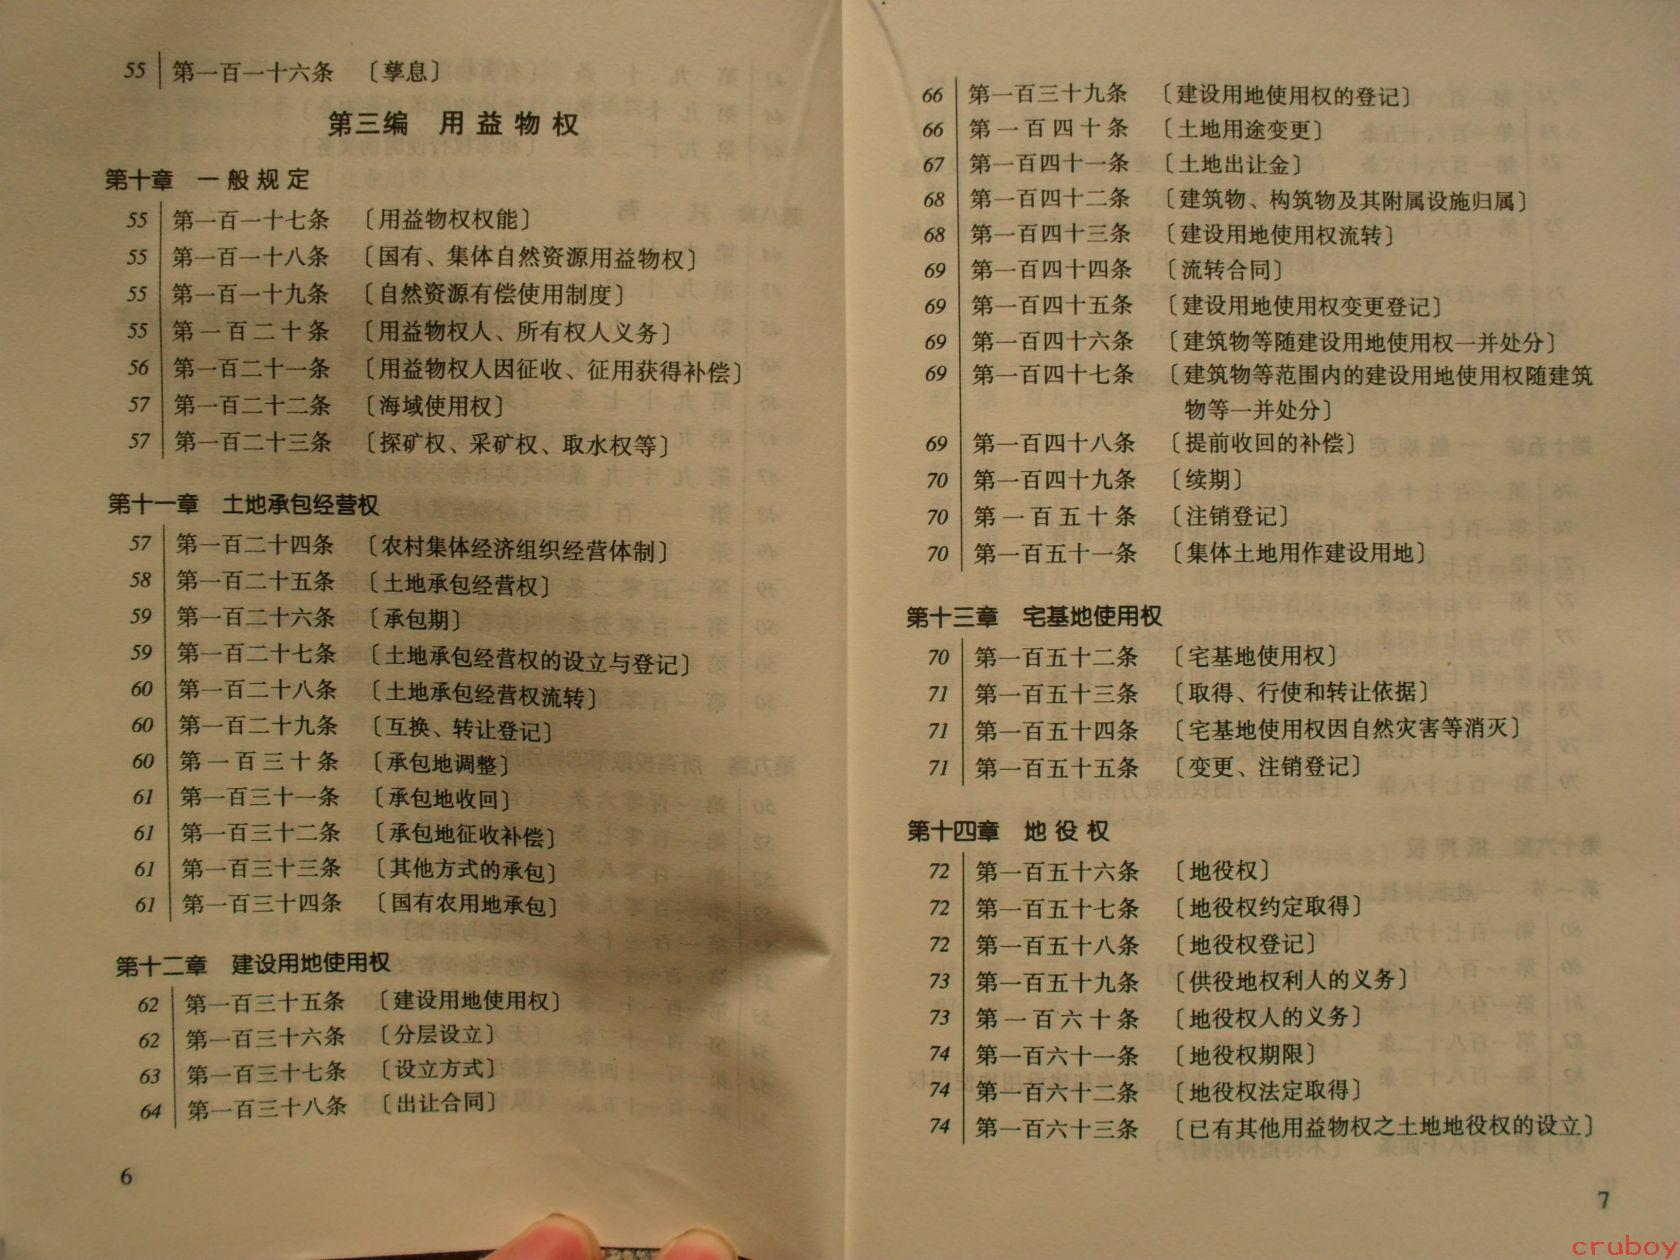 55 第一百一十六条 〔孳息〕
第三编 用益物权
第十章 一般规定
55 第一百一十七条 〔用益物权权能〕
55 第一百一十八条 〔国有、集体自然资源用益物权〕
55 第一百一十九条 〔自然资源有偿使用制度〕
55 第一百二十条 〔用益物权人、所有权人义务〕
56 第一百二十一条 〔用益物权人因征收、征用获得补偿〕
57 第一百二十二条 〔海域使用权〕
57 第一百二十三条 〔探矿权、采矿权、取水权等〕
第十一章 土地承包经营权
57 第一百二十四条 〔农村集体经济组织经营体制〕
58 第一百二十五条 〔土地承包经营权〕
59 第一百二十六条 〔承包期〕
59 第一百二十七条 〔土地承包经营权的设立与登记〕
60 第一百二十八条 〔土地承包经营权流转〕
60 第一百二十九条 〔互换、转让登记〕
60 第一百三十条 〔承包地调整〕
61 第一百三十一条 〔承包地收回〕
61 第一百三十二条 〔承包地征收补偿〕
61 第一百三十三条 〔其他方式的承包〕
61 第一百三十四条 〔国有农用地承包〕
第十二章 建设用地使用权
62 第一百三十五条 〔建设用地使用权〕
62 第一百三十六条 〔分层设立〕
63 第一百三十七条 〔设立方式〕
64 第一百三十八条 〔出让合同〕
6
66 第一百三十九条 〔建设用地使用权的登记〕
66 第一百四十条 〔土地用途变更〕
67 第一百四十一条 〔土地出让金〕
68 第一百四十二条 〔建筑物、构筑物及其附属设施归属〕
68 第一百四十三条 〔建设用地使用权流转〕
69 第一百四十四条 〔流转合同〕
69 第一百四十五条 〔建设用地使用权变更登记〕
69 第一百四十六条 〔建筑物等随建设用地使用权一并处分〕
69 第一百四十七条 〔建筑物等范围内的建设用地使用权随建筑
物等一并处分〕
69 第一百四十八条 〔提前收回的补偿〕
70 第一百四十九条 〔续期〕
70 第一百五十条 〔注销登记〕
70 第一百五十一条 〔集体土地用作建设用地〕
第十三章 宅基地使用权
70 第一百五十二条 〔宅基地使用权〕
71 第一百五十三条 〔取得、行使和转让依据〕
71 第一百五十四条 〔宅基地使用权因自然灾害等消灭〕
71 第一百五十五条 〔变更、注销登记〕
第十四章 地役权
72 第一百五十六条 〔地役权〕
72 第一百五十七条 〔地役权约定取得〕
72 第一百五十八条 〔地役权登记〕
73 第一百五十九条 〔供役地权利人的义务〕
73 第一百六十条 〔地役权人的义务〕
74 第一百六十一条 〔地役权期限〕
74 第一百六十二条 〔地役权法定取得〕
74 第一百六十三条 〔已有其他用益物权之土地地役权的设立〕
7
cruboy